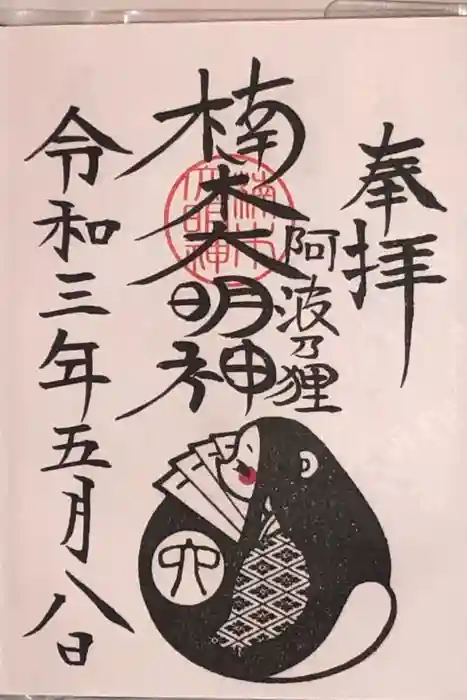 奉拝
阿波乃狸
楠木大明神
令和三年五月八日